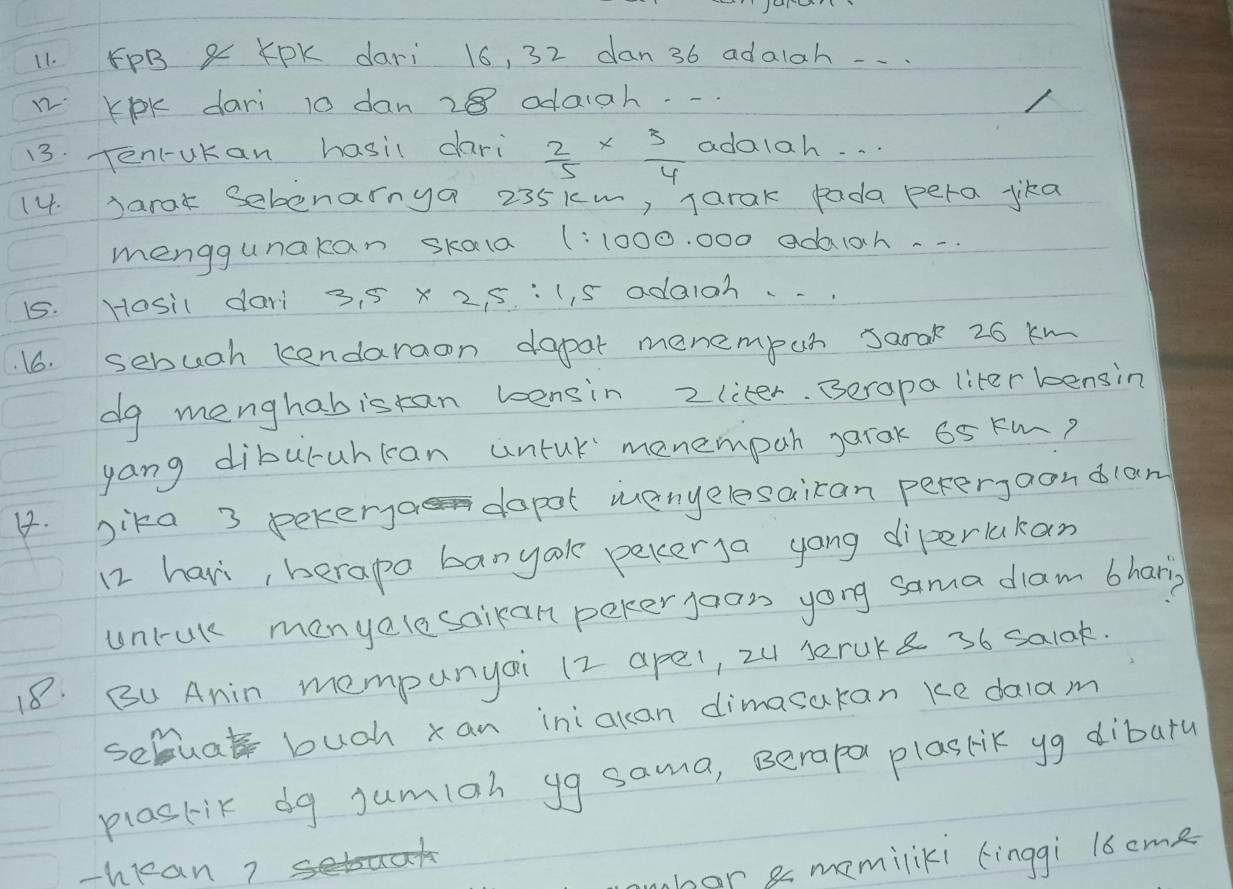 11. FPB & KPK dari 16, 32 dan 36 adalah ....
12. KPK dari 10 dan 28 adalah ...
13. Tentukan hasil dari 2/5 x 3/4 adalah ...
14. Jarak sebenarnya 235 km, jarak pada peta jika
menggunakan skala 1:1000.000 adalah ....
15. Hasil dari 3,5 x 2,5 : 1,5 adalah ...
16. Sebuah kendaraan dapat menempuh jarak 26 km
dg menghabiskan bensin 2 liter. Berapa liter bensin
yang dibutuhkan untuk menempuh jarak 65 km?
17. Jika 3 pekerja dapat menyelesaikan pekerjaan dlam
12 hari, berapa banyak pekerja yang diperlukan
untuk menyelesaikan pekerjaan yang sama dlam 6 hari?
18. Bu Anin mempunyai 12 apel, 24 jeruk & 36 salak.
Semua buah x an ini akan dimasukan ke dalam
plastik dg jumlah yg sama, Berapa plastik yg dibutu
-hkan ?
& memiliki tinggi 16 cm &